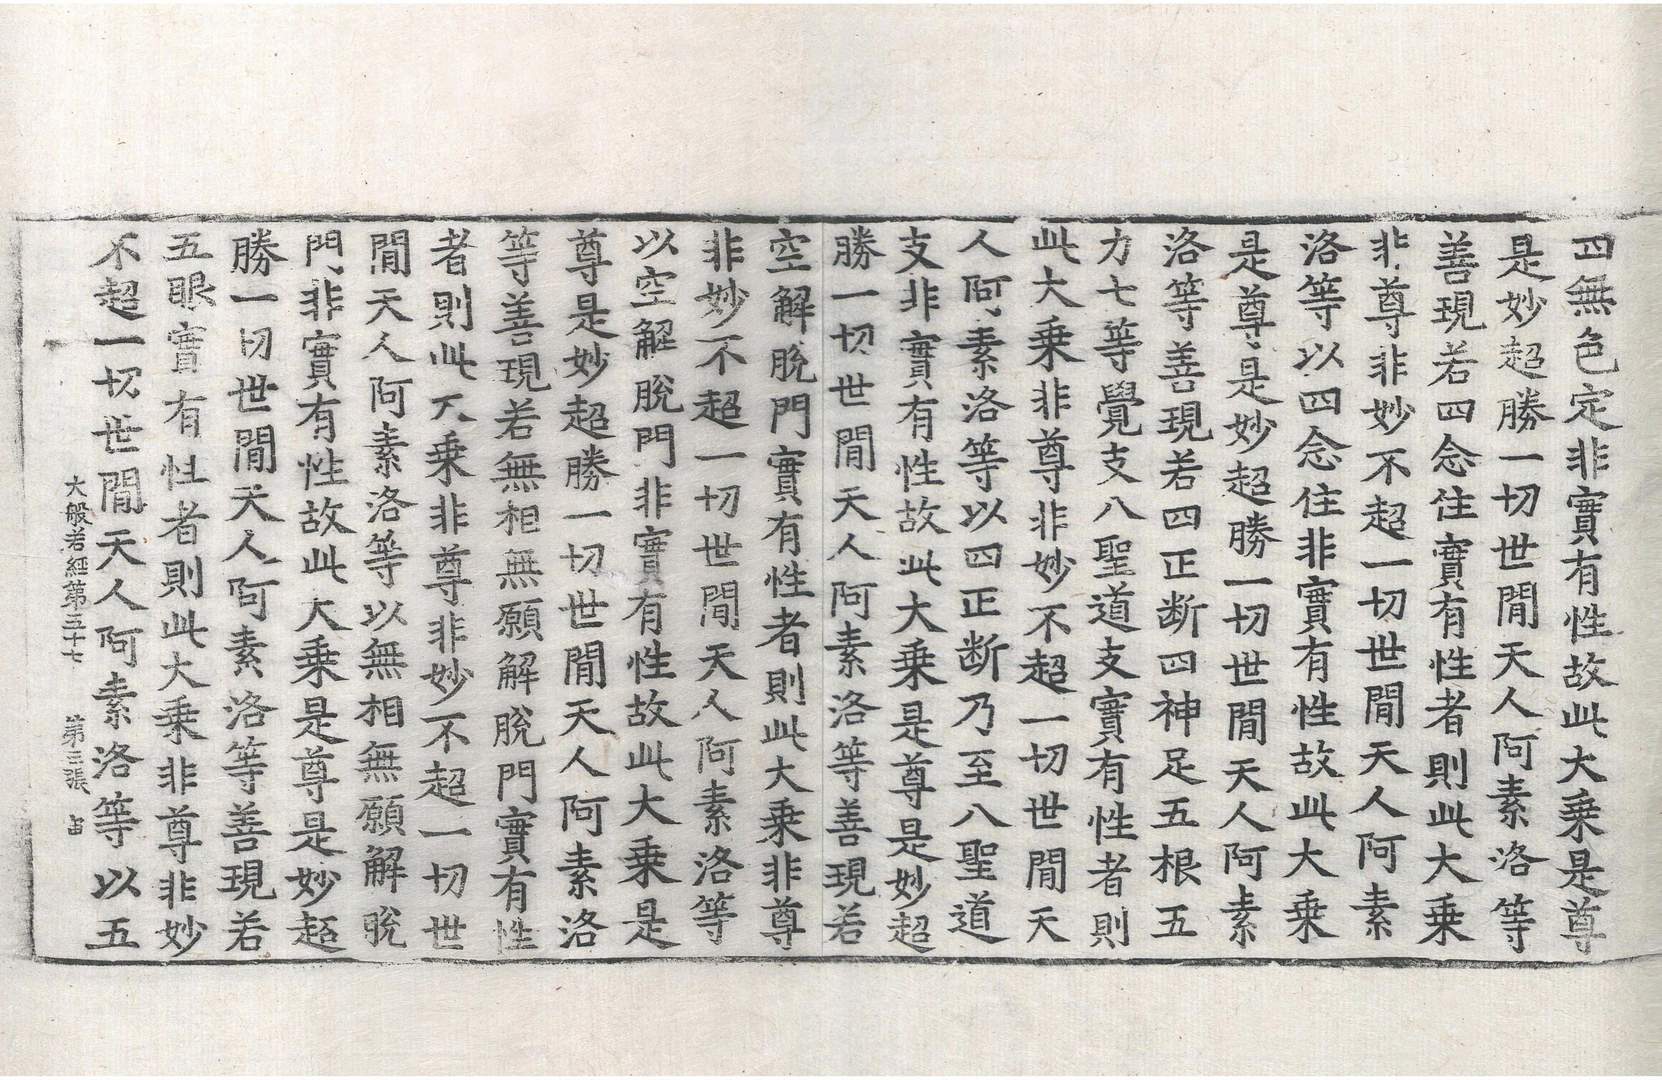 四無色定非實有性故此大乘是尊
是妙超勝一切世間天人阿素洛等
善現若四念住實有性者則此大乘
非尊非妙不超一切世間天人阿素
洛等以四念住非實有性故此大乘
是尊是妙超勝一切世間天人阿素
洛等善現若四正断四神足五根五
力七等覺支八聖道支實有性者則
此大乘非尊非妙不超一切世間天
人阿素洛等以四正断乃至八聖道
支非實有性故此大乘是尊是妙超
勝一切世間天人阿素洛等善現若
空解脫門實有性者則此大乘非尊
非妙不超一切世間天人阿素洛等
以空解脫門非實有性故此大乘是
尊是妙超勝一切世間天人阿素洛
等善現若無相無願解脫門實有性
者則此大乘非尊非妙不超一切世
間天人阿素洛等以無相無願解脫
門非實有性故此大乘是尊是妙超
勝一切世間天人阿素洛等善現若
五眼實有性者則此大乘非尊非妙
不超一切世間天人阿素洛等以五
大般若經第五十七 第三張